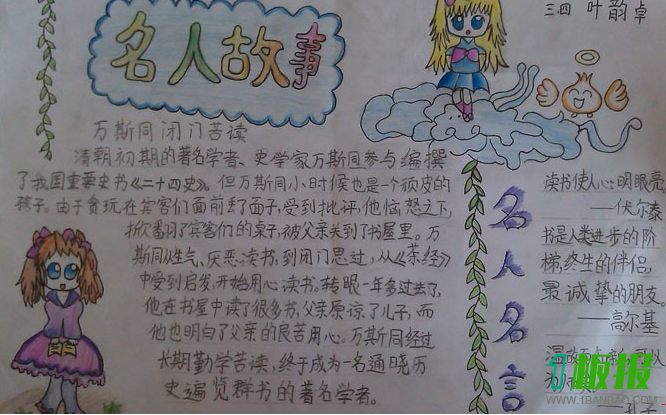 三.四 叶韵卓
名人故事
万斯同闭门苦读
清朝初期的著名学者、史学家万斯同参与编撰
了我国重要史书《二十四史》。但万斯同小时候也是一个顽皮的
孩子。由于贪玩在宾客们面前丢了面子,受到批评,他恼怒之下,
掀翻了宾客们的桌子,被父亲关到了书屋里。万
斯同从生气、厌恶读书,到闭门思过,从《茶经》
中受到启发,开始用心读书。转眼一年多过去了,
他在书屋中读了很多书,父亲原谅了儿子,而
他也明白了父亲的良苦用心。万斯同经过
长期勤学苦读,终于成为一名通晓历
史遍览群书的著名学者。
名人名言
读书使人心明眼亮
——伏尔泰
书是人类进步的阶
梯,终生的伴侣,
最诚挚的朋友
——高尔基
温故
以
孔子
板报
WWW.1BANBAO.COM